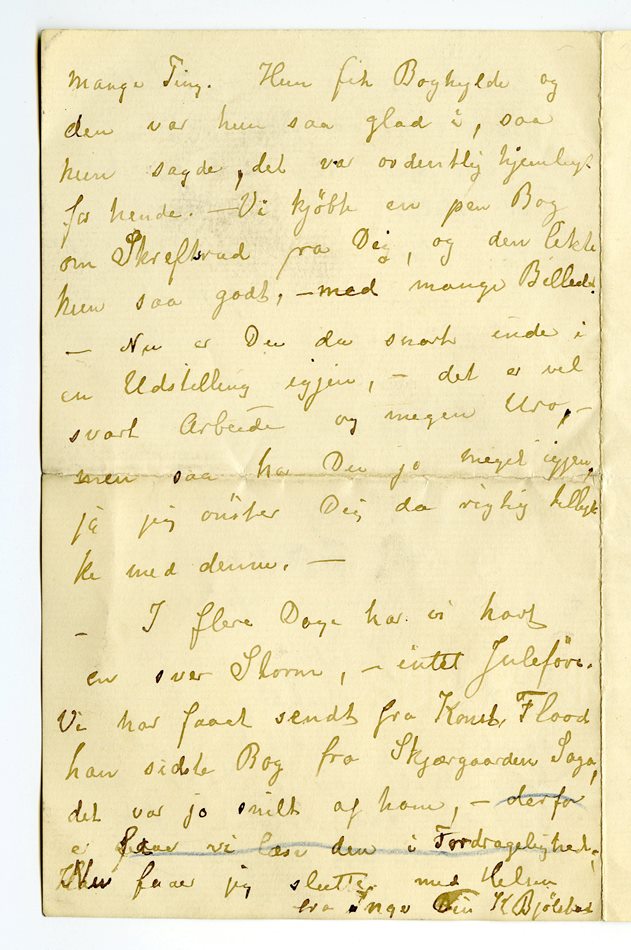 mange Ting. Hun fik Boghylde og
den var hun saa glad i, saa
hun sagde, det var ordentlig hjemligt
for hende. – Vi kjøbte en pen Bog
om Skrefsrud fra Dig, og den likte
hun saa godt, – med mange Billeder.
– Nu er Du da snart inde i
en Udstilling igjen, – det er vel
svært Arbeide og megen Uro, –
men saa har Du jo meget igjen,
ja jeg ønsker Dig da rigtig tillyk
ke med denne. –
– I flere Dage har vi havt
en svær Storm, – intet Juleføre.
Vi har faaet sendt fra Konst. Flood
han sidste Bog fra Skjærgaarden Saga,
det var jo snilt af ham, – derfor
er faaer vi læse den i Fordragelighed.
Nu faaer jeg slutte med Helsen
fra Inga Din K Bjølstad